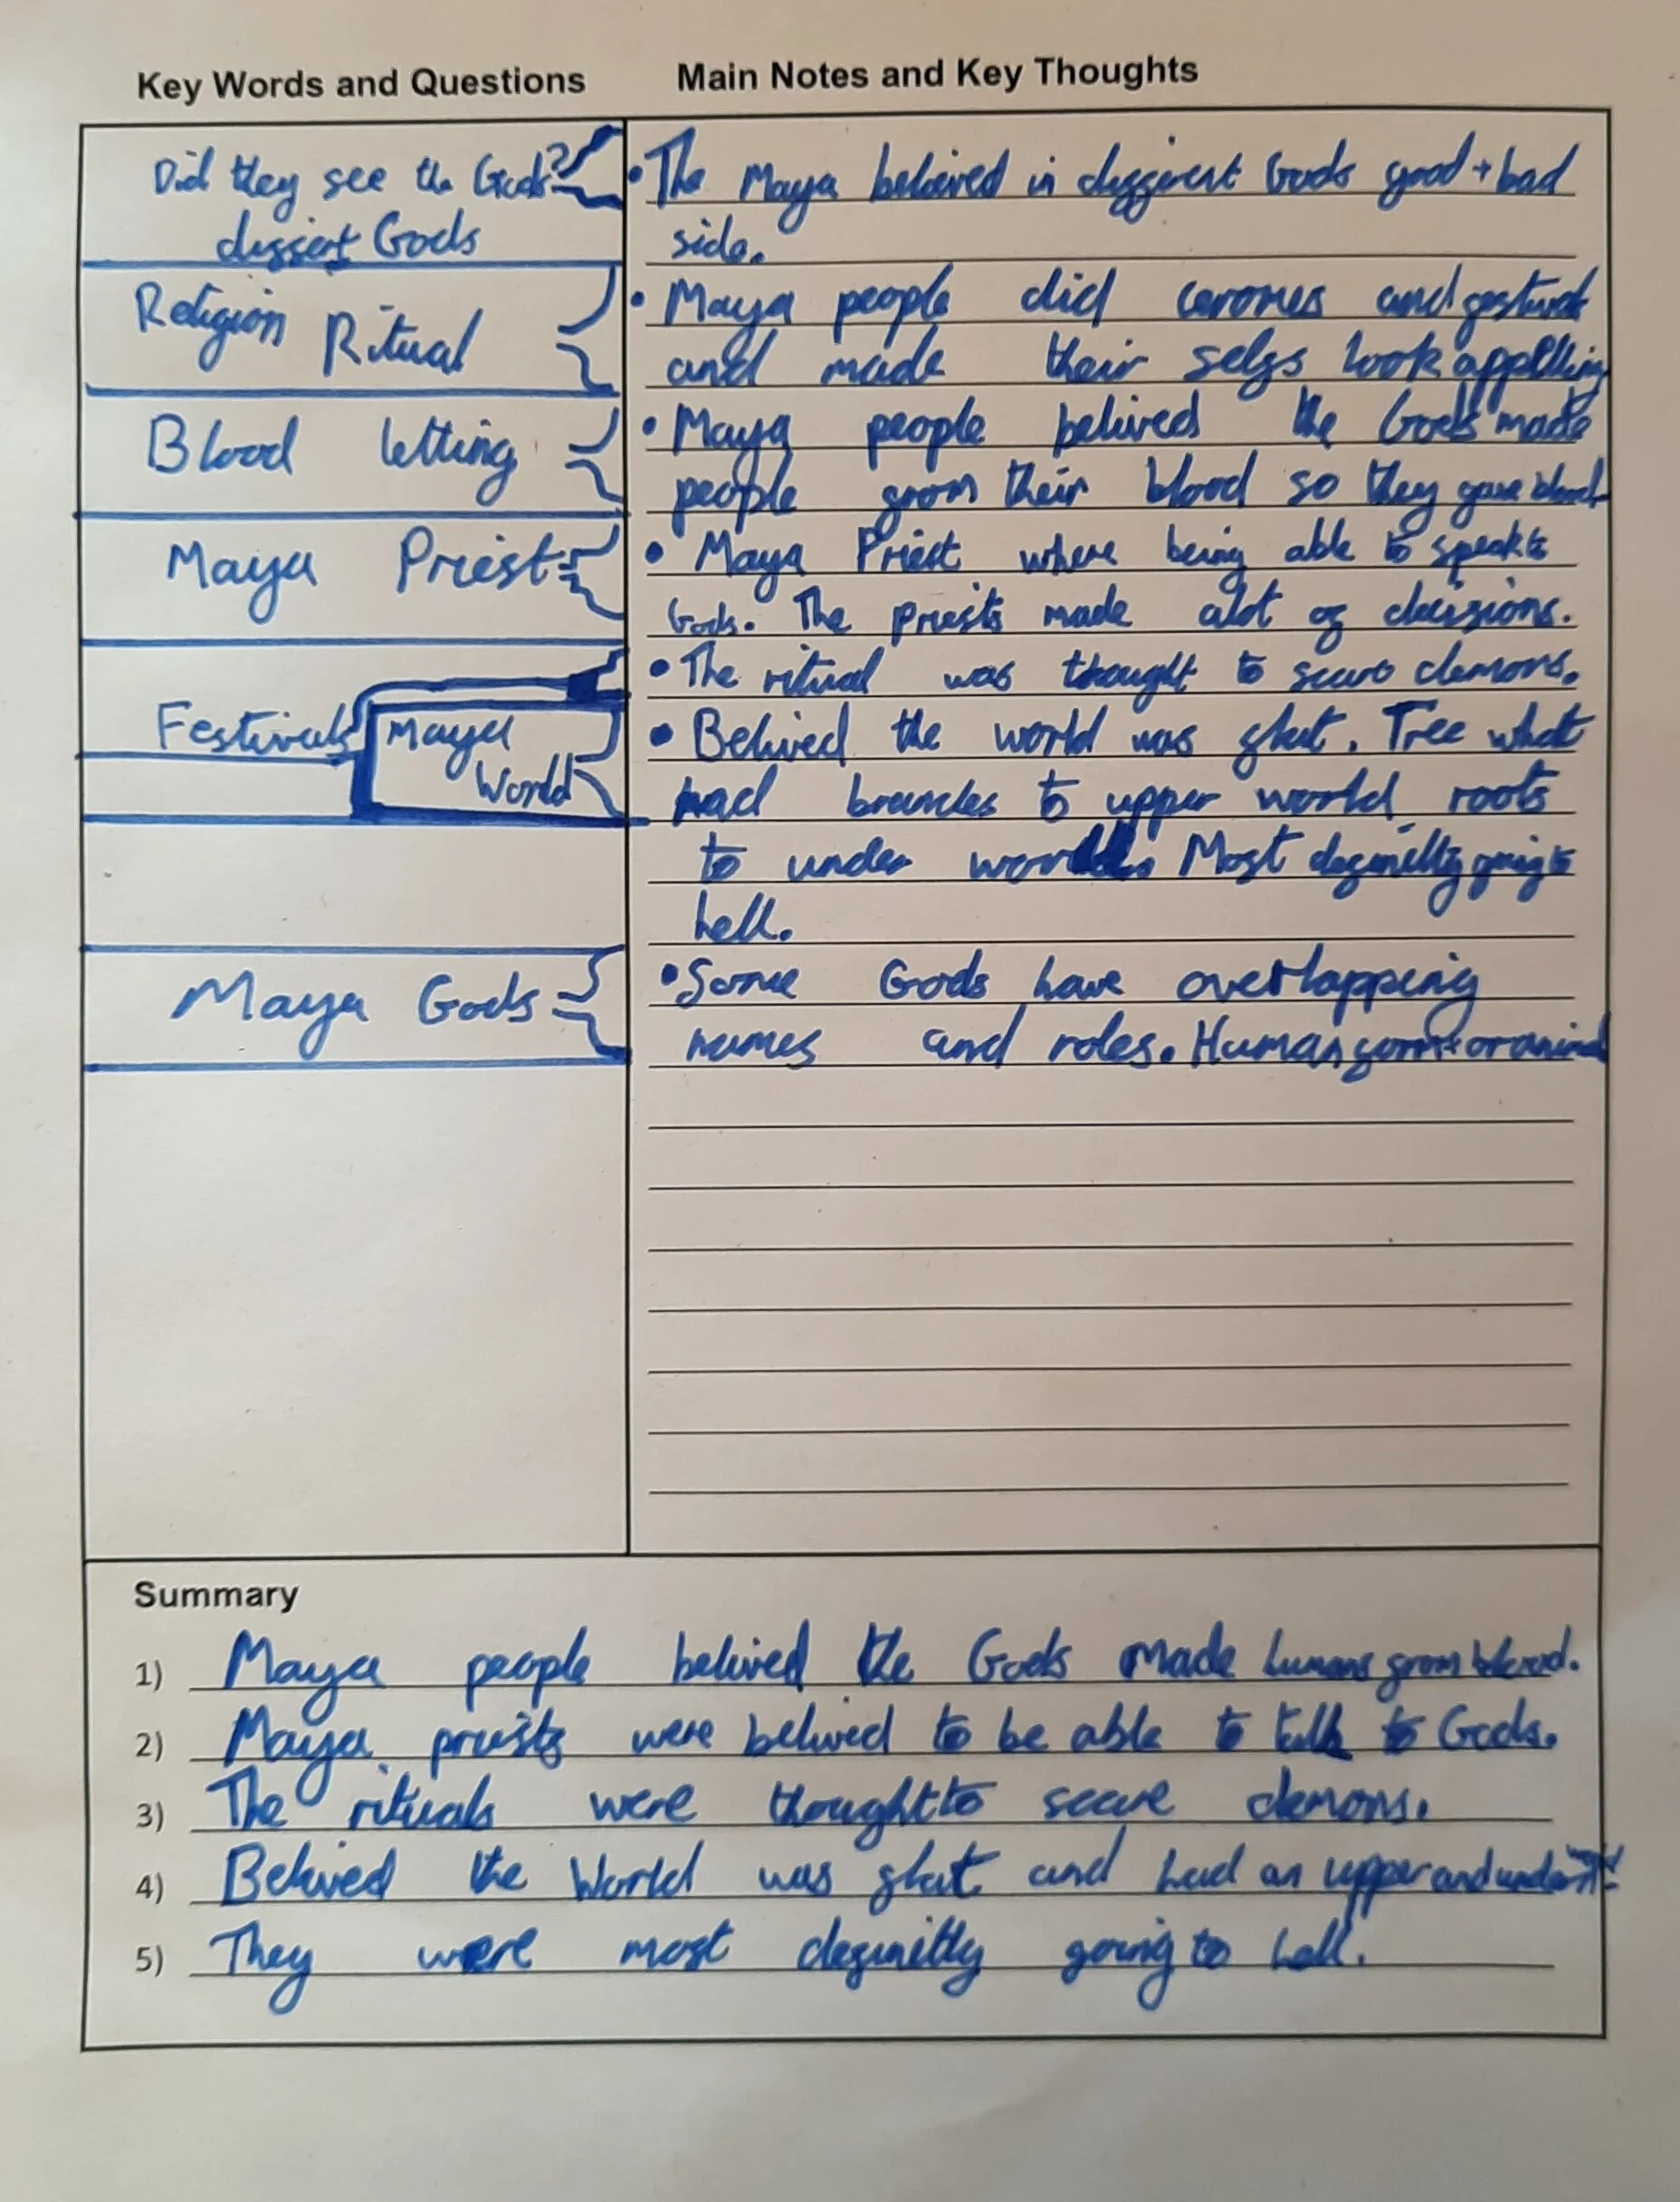 Key Words and Questions
Main Notes and Key Thoughts
Did they see the Gods?
Gods
• The Maya believed in different Gods good + bad
side.
Religion Ritual
• Maya people did and
and made their selfs look
Blood letting
• Maya people belived the Gods made
people from their blood so they gave blood
Maya Priest
• Maya Priest where being able to speak to
Gods. The Priests made alot of decisions.
Festivals
• The ritual was thought to scare demons.
Maya
World
• Belived the world was flat. Tree what
had branches to upper world roots
to under world. Most definitly going to
hell.
Maya Gods
• Some Gods have overlapping
names and roles. Human form or animal
Summary
1) Maya people belived the Gods made humans from blood.
2) Maya priests were belived to be able to talk to Gods.
3) The rituals were thought to scare demons.
4) Belived the World was flat and had an upper and under
5) They were most definitly going to hell.